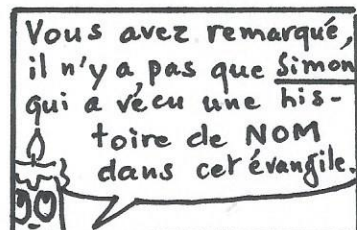 Vous avez remarqué,
il n'y a pas que Simon
qui a vécu une his-
toire de NOM
dans cet évangile.